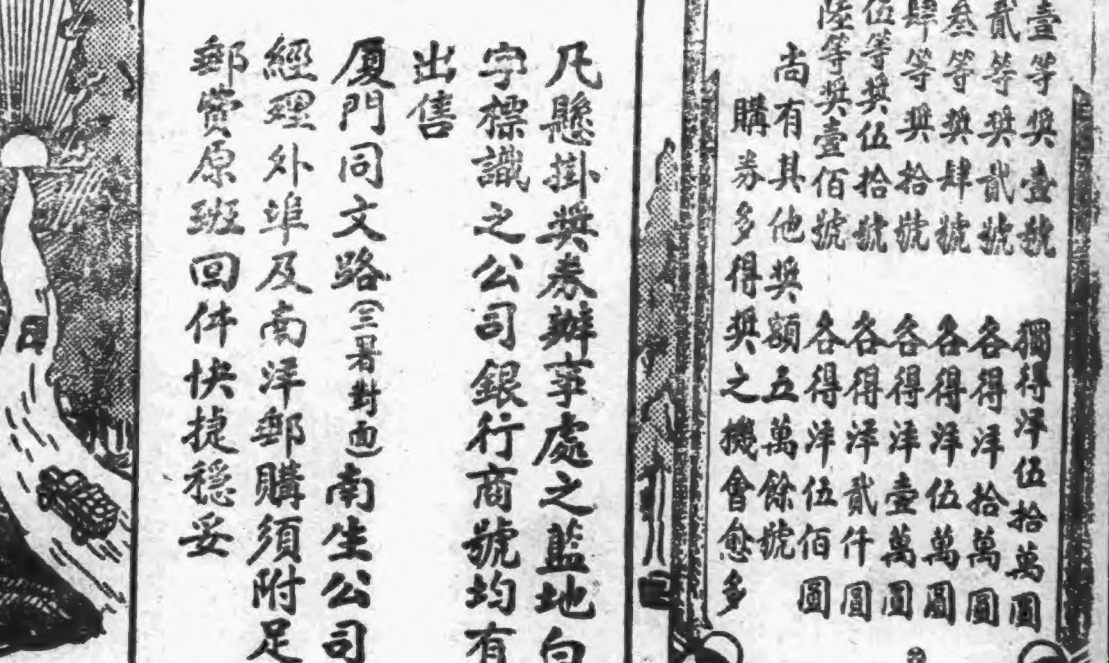 壹等獎壹號 獨得洋伍拾萬圓
貳等獎貳號 各得洋拾萬圓
叁等獎肆號 各得洋伍萬圓
肆等獎拾號 各得洋壹萬圓
伍等獎伍拾號 各得洋貳仟圓
陸等獎壹佰號 各得洋伍佰圓
尚有其他獎額五萬餘號
購券多得獎之機會愈多
凡懸掛獎券辦事處之藍地白
字標識之公司銀行商號均有
出售
厦門同文路(三署對面)南生公司
經理外埠及南洋郵購須附足
郵資原班回件快捷穩妥